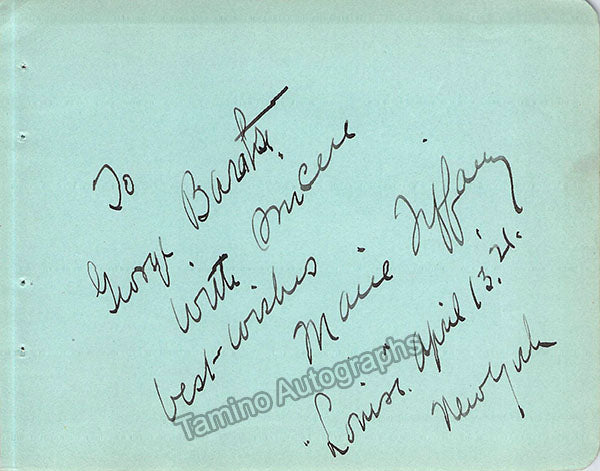 To
George Barati.
With sincere
best-wishes
Marie Tiffany
"Louise". April 13. 21.
New York
Tamino Autographs